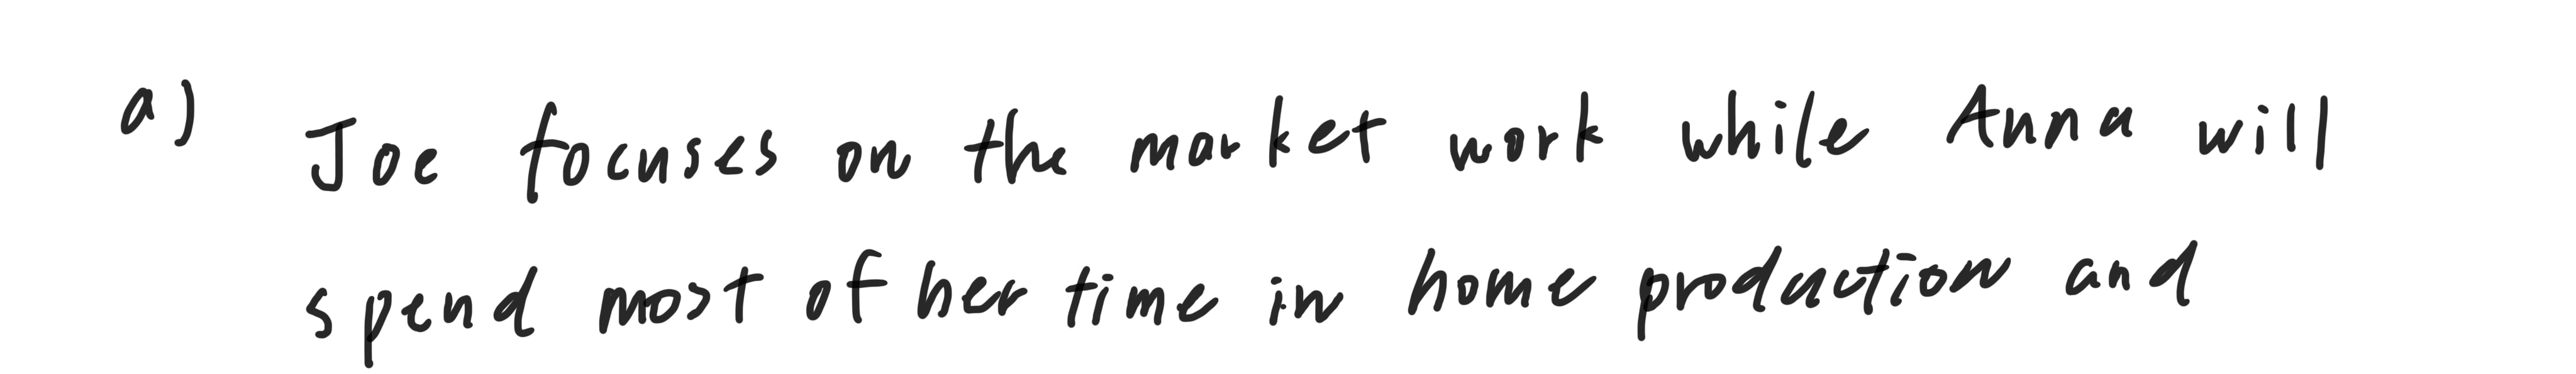 a) Joe focuses on the market work while Anna will
spend most of her time in home production and